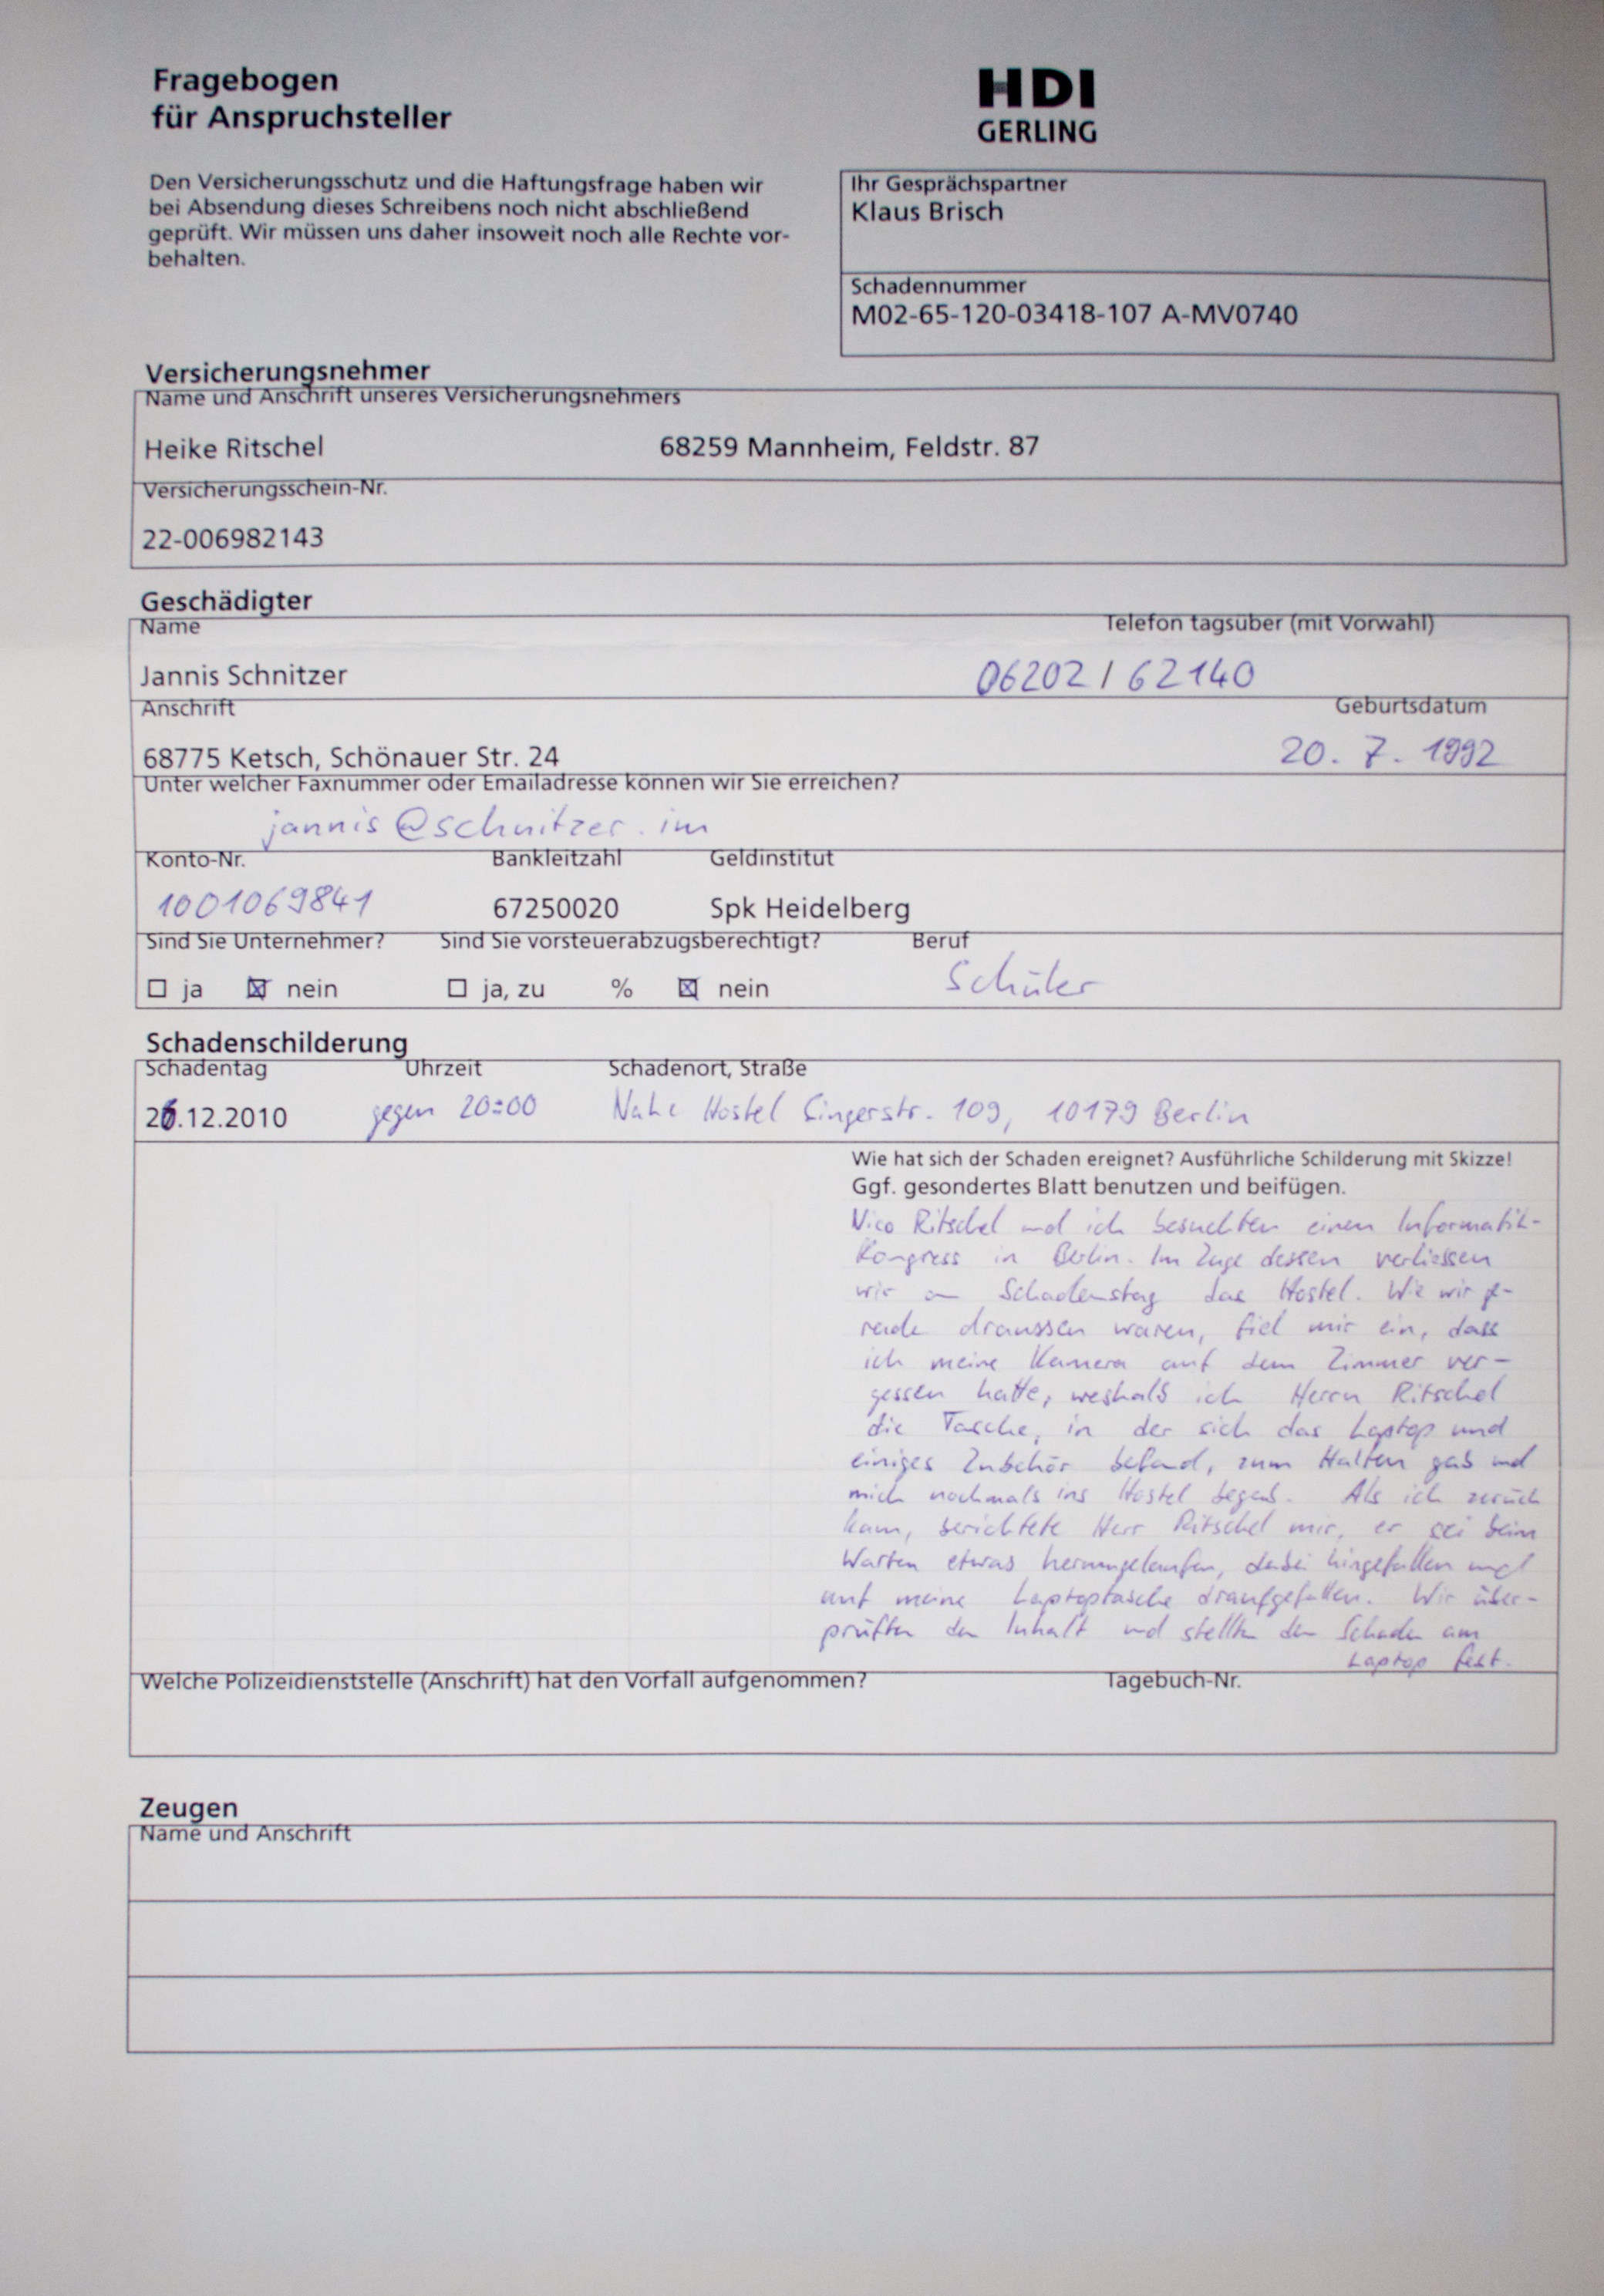 Fragebogen
für Anspruchsteller
HDI
GERLING
Den Versicherungsschutz und die Haftungsfrage haben wir
bei Absendung dieses Schreibens noch nicht abschließend
geprüft. Wir müssen uns daher insoweit noch alle Rechte vor-
behalten.
Ihr Gesprächspartner
Klaus Brisch
Schadennummer
M02-65-120-03418-107 A-MV0740
Versicherungsnehmer
Name und Anschrift unseres Versicherungsnehmers
Heike Ritschel 68259 Mannheim, Feldstr. 87
Versicherungsschein-Nr.
22-006982143
Geschädigter
Name Telefon tagsüber (mit Vorwahl)
Jannis Schnitzer 06202 / 62140
Anschrift Geburtsdatum
68775 Ketsch, Schönauer Str. 24 20. 7. 1992
Unter welcher Faxnummer oder Emailadresse können wir Sie erreichen?
jannis@schnitzer.im
Konto-Nr. Bankleitzahl Geldinstitut
1001069841 67250020 Spk Heidelberg
Sind Sie Unternehmer? Sind Sie vorsteuerabzugsberechtigt? Beruf
ja nein ja, zu % nein Schüler
Schadenschilderung
Schadentag Uhrzeit Schadenort, Straße
26.12.2010 gegen 20:00 Nahe Hostel Singerstr. 109, 10179 Berlin
Wie hat sich der Schaden ereignet? Ausführliche Schilderung mit Skizze!
Ggf. gesondertes Blatt benutzen und beifügen.
Nico Ritschel und ich besuchten einen Informatik-
Kongress in Berlin. Im Zuge dessen verliessen
wir am Schadenstag das Hostel. Wie wir ge-
rade draussen waren, fiel mir ein, dass
ich meine Kamera auf dem Zimmer ver-
gessen hatte, weshalb ich Herrn Ritschel
die Tasche, in der sich das Laptop und
einiges Zubehör befand, zum Halten gab und
mich nochmals ins Hostel begab. Als ich zurück
kam, berichtete Herr Ritschel mir, er sei beim
Warten etwas herumgelaufen, dabei hingefallen und
auf meine Laptoptasche draufgefallen. Wir über-
prüften den Inhalt und stellten den Schaden am
Laptop fest.
Welche Polizeidienststelle (Anschrift) hat den Vorfall aufgenommen? Tagebuch-Nr.
Zeugen
Name und Anschrift